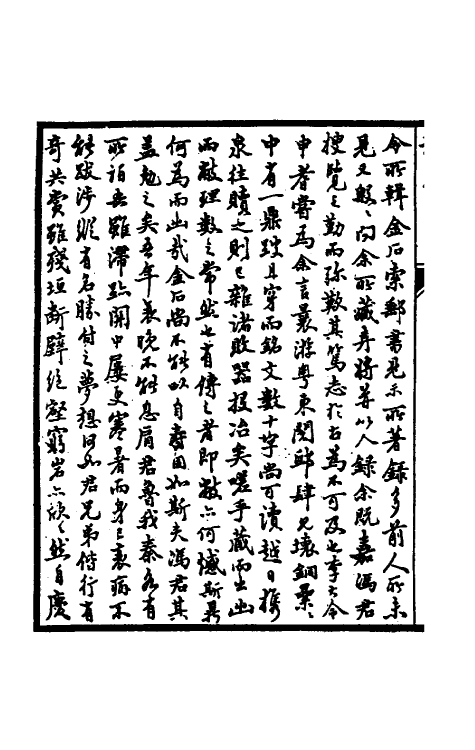 今所輯金石索郵書見示所著錄多前人所未
見又殷殷向余所藏弆將并以入錄余既嘉馮君
搜覽之勤而弥歎其篤志於古為不可及也李大令
申耆嘗為余言曩游粵東閱肆見壞銅纍纍
中有一鼎䟽且穿而銘文數十字尚可讀越日携
泉往贖之則已雜諸敗器投冶矣嗟乎藏而出出
而敝理數之常然也有傳之者即敝亦何憾斯鼎
何為而出哉金石尚不能以自壽固如斯夫馮君其
盍勉之矣吾年衰晚不能息肩君魯我秦各有
所泊吾雖滯跡關中屢更寒暑而身已衰病不
能跋涉縱有名勝付之夢想何如君兄弟偕行有
奇共賞雖殘垣斷壁絕壑窮岩亦欣欣然自慶